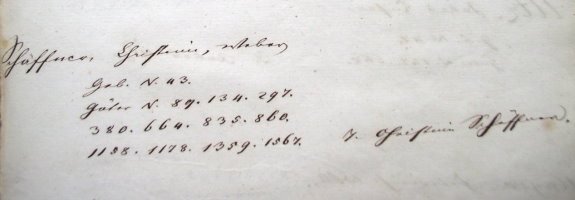 Schäffner, Christein, Weber
Geb. N. 43.
Güter N. 89. 134. 297.
380. 664. 835. 860.
1158. 1178. 1359. 1567.
T. Christein Schöffner.